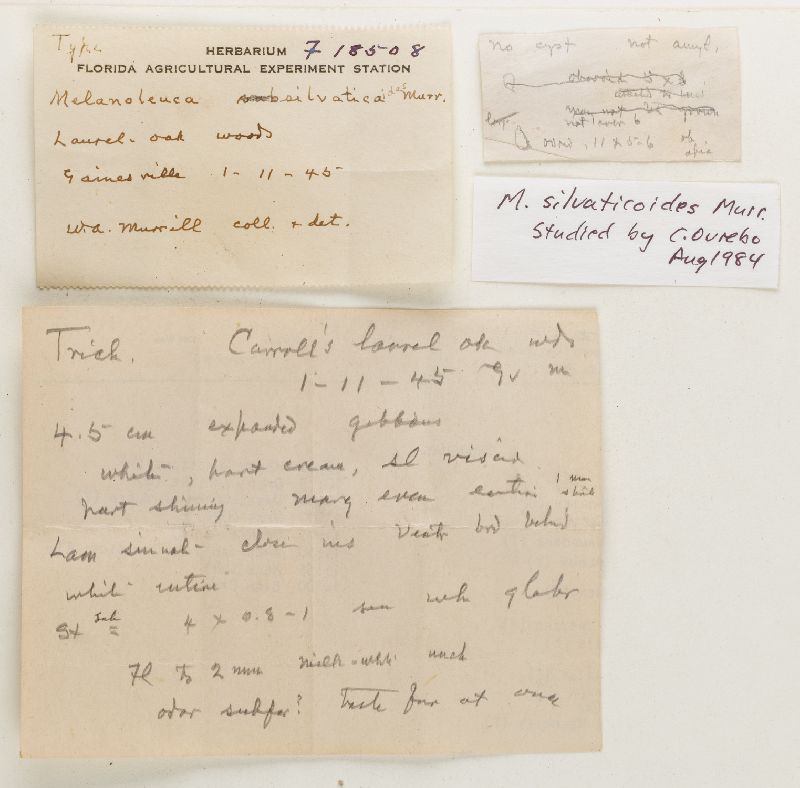 Type
HERBARIUM 7 18508
FLORIDA AGRICULTURAL EXPERIMENT STATION
Melanoleuca subsilvaticaides Murr.
Laurel-oak woods
Gainesville 1-11-45
W.A. Murrill coll. + det.
no cyst not amyl.
obovoid
not over 6
ovoid, 11 x 5-6
M. silvaticoides Murr.
Studied by C. Ovrebo
Aug 1984
Trich. Carroll's laurel oak wds
1-11-45 Gv m
4.5 cm expanded gibbous
white, part cream, sl viscid
part shining marg even entire 1 mm
Lam sinuate close ins Ventr brd behind
white entire
St 4 x 0.8-1 sm wh glabr
Fl to 2 mm milk-white unch
odor subfar? Taste far at once